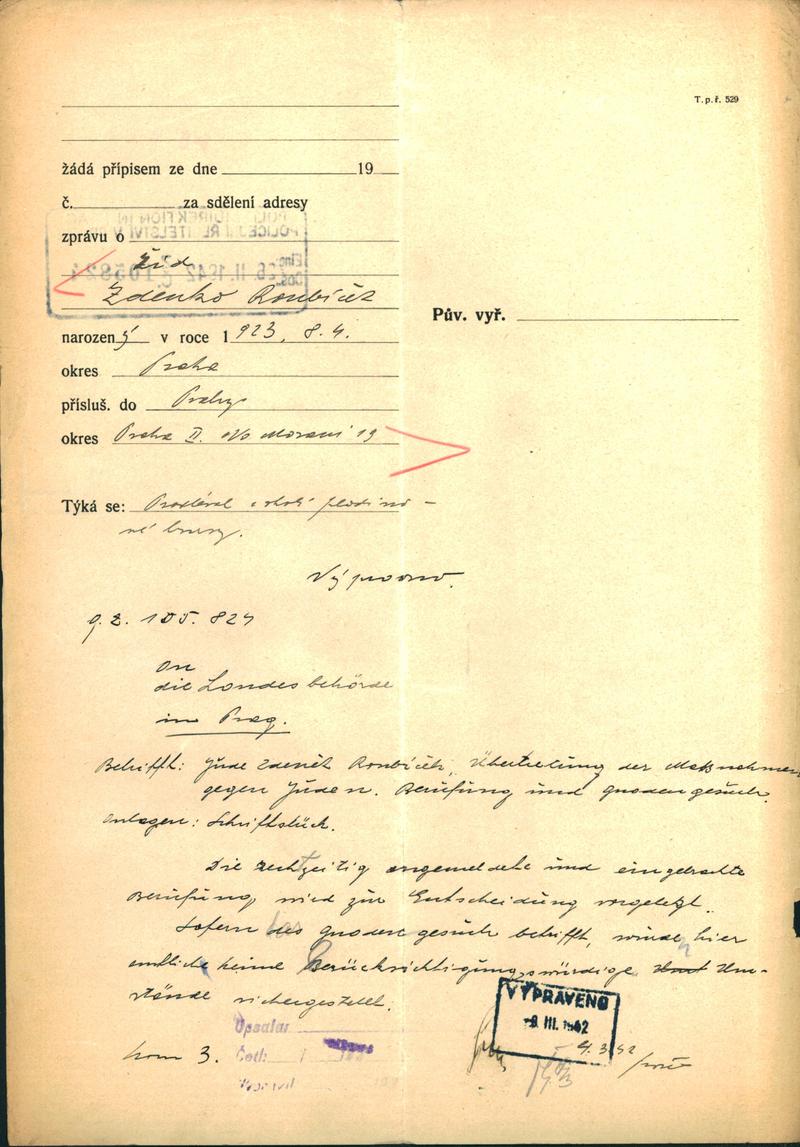 T. p. ř. 529
žádá přípisem ze dne 19
č. za sdělení adresy
zprávu o
Žid
Zdenko Roubíček
narozený v roce 1923, 8.4.
okres Praha
přísluš. do Prahy
okres Praha II. Na Moráni 19
Pův. vyř.
Týká se:
né burzy.
g.Z. 105.824
An
die Landesbehörde
in Prag.
Betrifft: Jude Zdeněk Roubíček, Übertretung der Massnahmen
gegen Juden. Berufung und Gnadengesuch.
Anlagen: Schriftstück.
Die rechtzeitig angemeldete und eingebrachte
Berufung wird zur Entscheidung vorgelegt.
Sofern das Gnadengesuch betrifft, wurden hier
amtlich keine Berücksichtigungswürdige Um-
stände sichergestellt.
VYPRAVENO
-9. III. 1942
kom 3.
Opsal:
Četl:
Vypravil
4.3.42